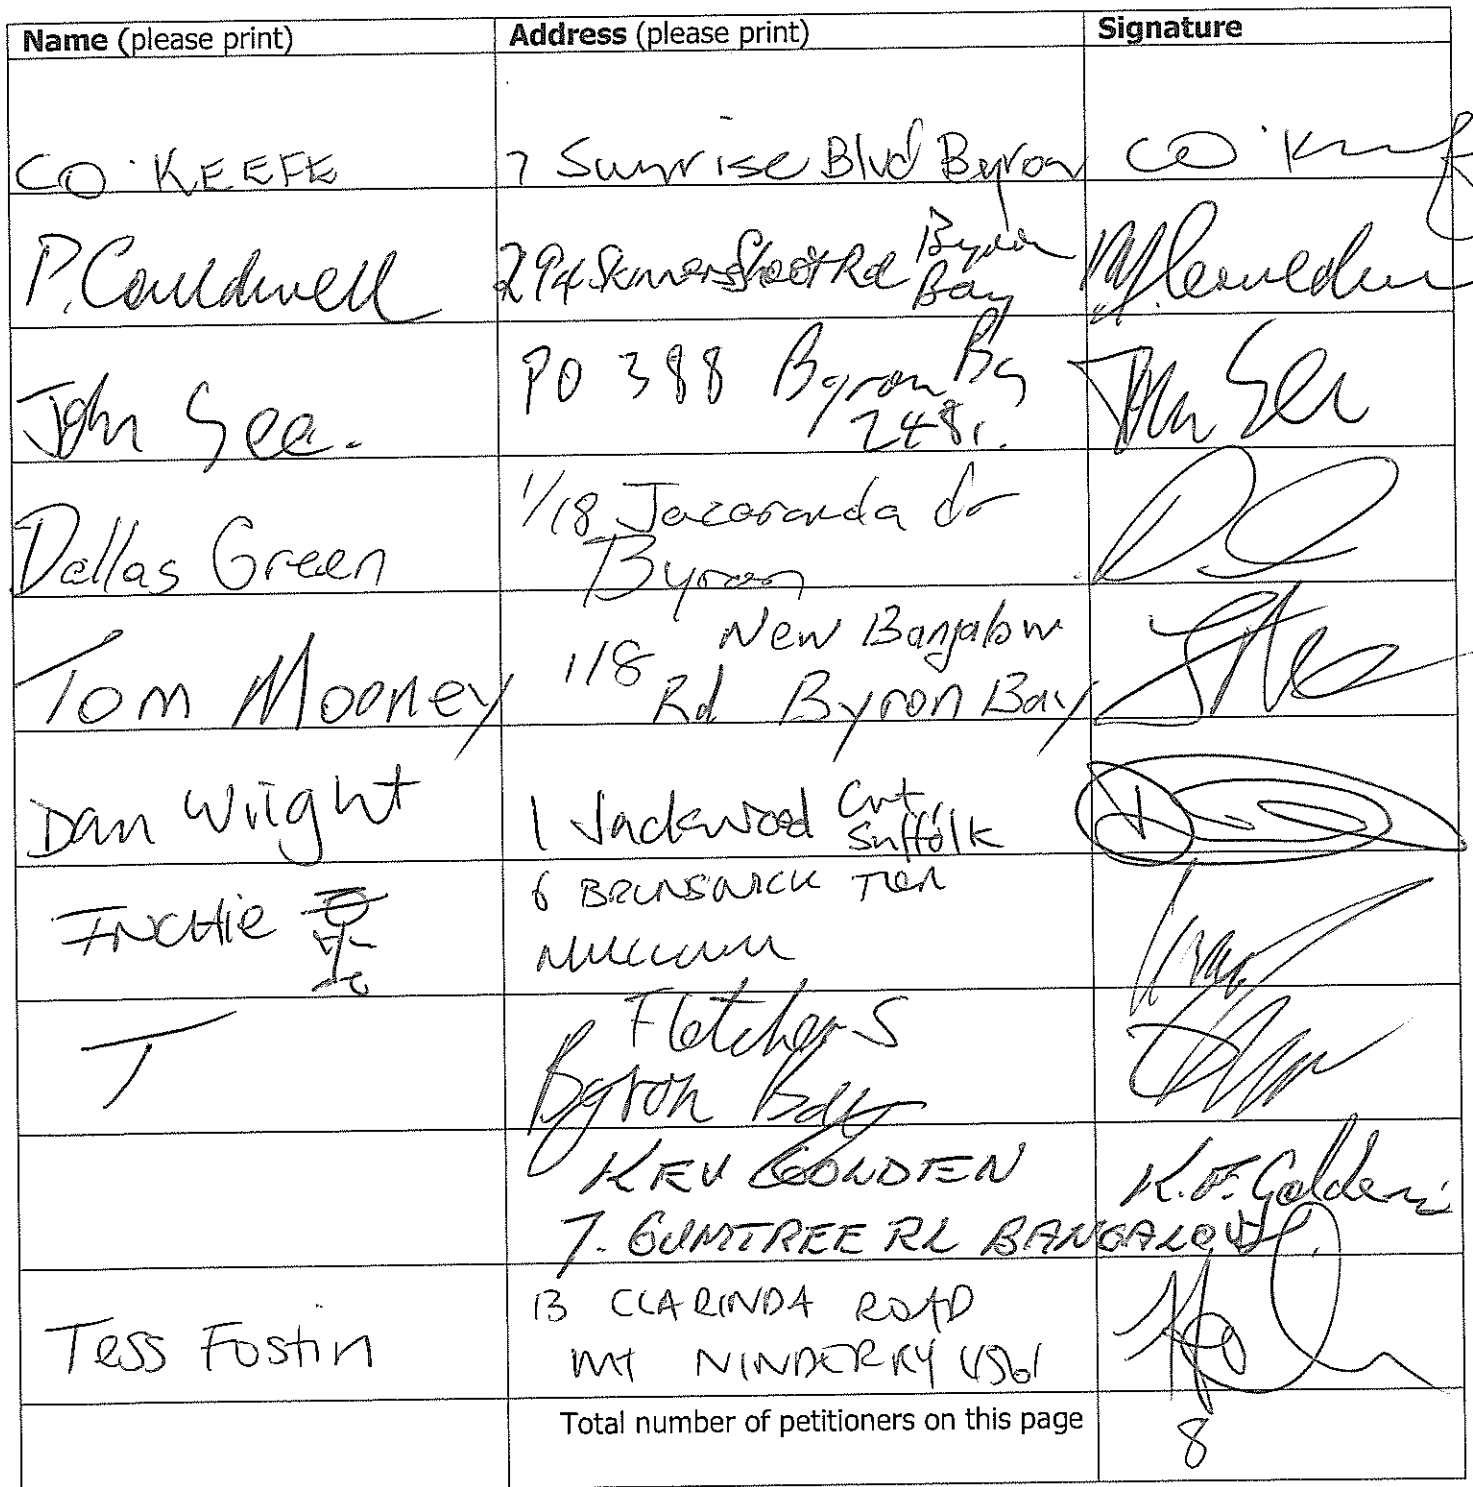 Name (please print) Address (please print) Signature
CO'KEEFE 7 Sunrise Blvd Byron CO'Keefe
P. Cauldwell 294 Skinners Shoot Rd Byron Bay
John See. PO 388 Byron By John See
2481.
Dallas Green 1/18 Jacaranda dr
Byron
Tom Mooney 118 New Bangalow
Rd Byron Bay
Dan Wright 1 Jackwood Crt
Suffolk
INCHIE 6 BRUNSWICK TCR
T Fletcher S
Byron Bay
KEV GOLDEN K.F. Golden
7. GUMTREE RL BANGALOW.
Tess Fostin 13 CLARINDA ROAD
MT NINDERRY 4561
Total number of petitioners on this page 8